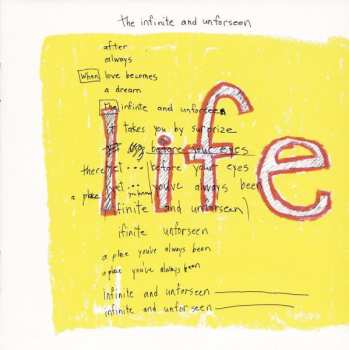 the infinite and unforseen
after
always
When love becomes
a dream
the infinite and unforseen
it takes you by surprize
before your eyes
there yet... before your eyes
a place you know yet... you've always been
(infinite and unforsean)
life
infinite unforseen
a place you've always been
a place you've always been
infinite and unforseen
infinite and unforseen